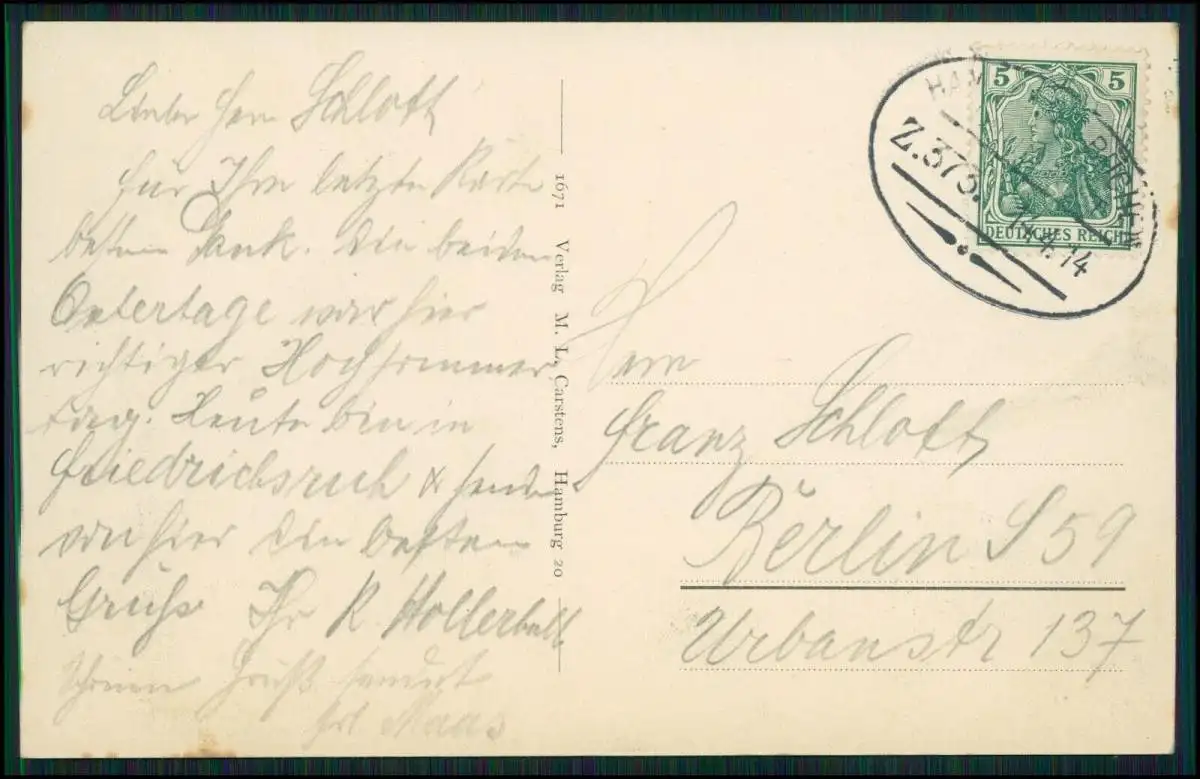 Lieber Herr Schlott
für Ihre letzte Karte
besten Dank. Die beiden
Ostertage war hier
richtiger Hochsommer
tag. Heute bin in
Friedrichsruh & sende
von hier die besten
Grüße Ihr R. Hollerbull
Gruß sendet
Maas
1671 Verlag M. L. Carstens, Hamburg 20
Z.373.
4.14
5 5
DEUTSCHES REICH
Herrn
Franz Schlott
Berlin S 59
Urbanstr 137